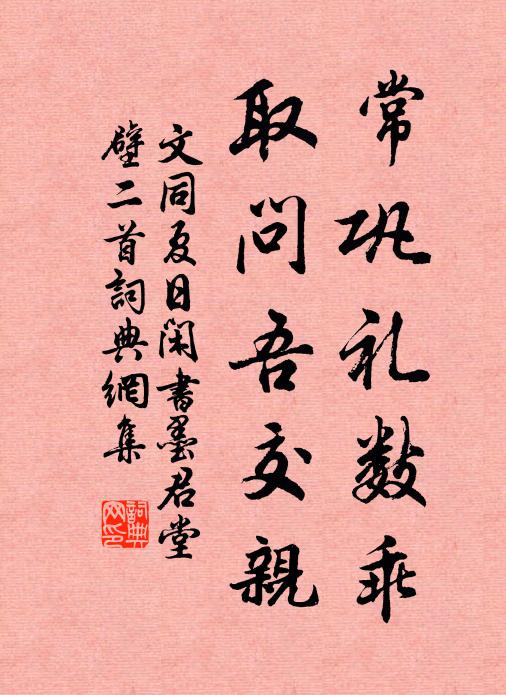 常巩礼数乖
取问吾交親
文同夏日闲書墨君堂
壁二首詞典網集
詞典网印